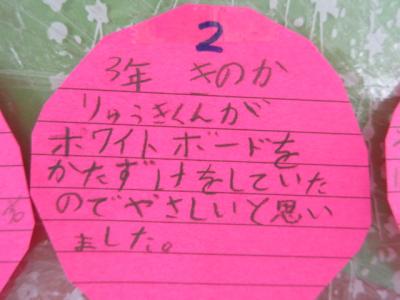 2
3年 きのか
りゅうきくんが
ホワイトボードを
かたずけをしていた
のでやさしいと思い
ました。